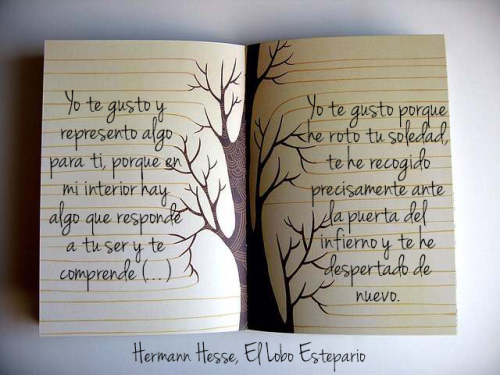 Yo te gusto y
represento algo
para ti, porque en
mi interior hay
algo que responde
a tu ser y te
comprende (...)
Yo te gusto porque
he roto tu soledad,
te he recogido
precisamente ante
la puerta del
infierno y te he
despertado de
nuevo.
Hermann Hesse, El Lobo Estepario